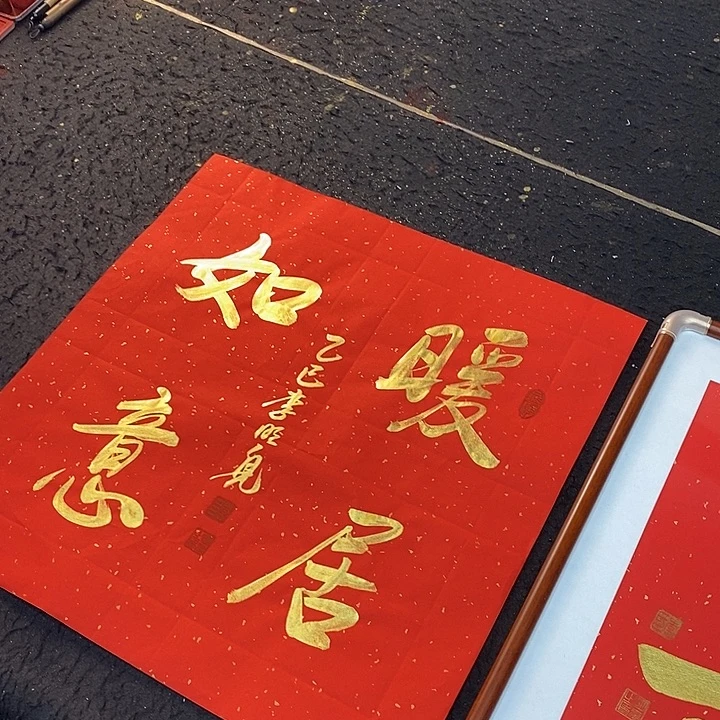 暖居
如意
乙巳李旺